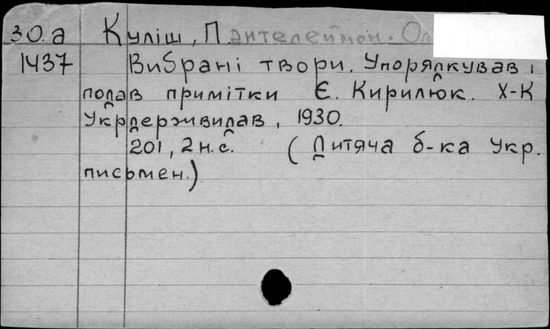 30.а Куліш, Пантелеймон.
1437 Вибрані твори. Упорядкував і
подав примітки Є. Кирилюк. Х-К
Укрдержвидав, 1930.
201, 2 н.с. (Дитяча б-ка Укр.
письмен.)